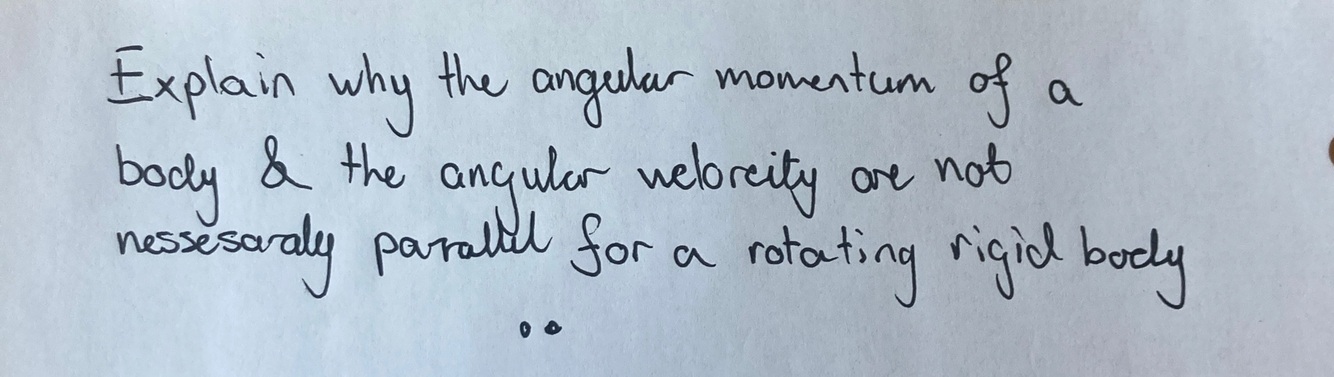 Explain why the angular momentum of a
body & the angular veloreity are not
nessesaraly parallel for a rotating rigid body